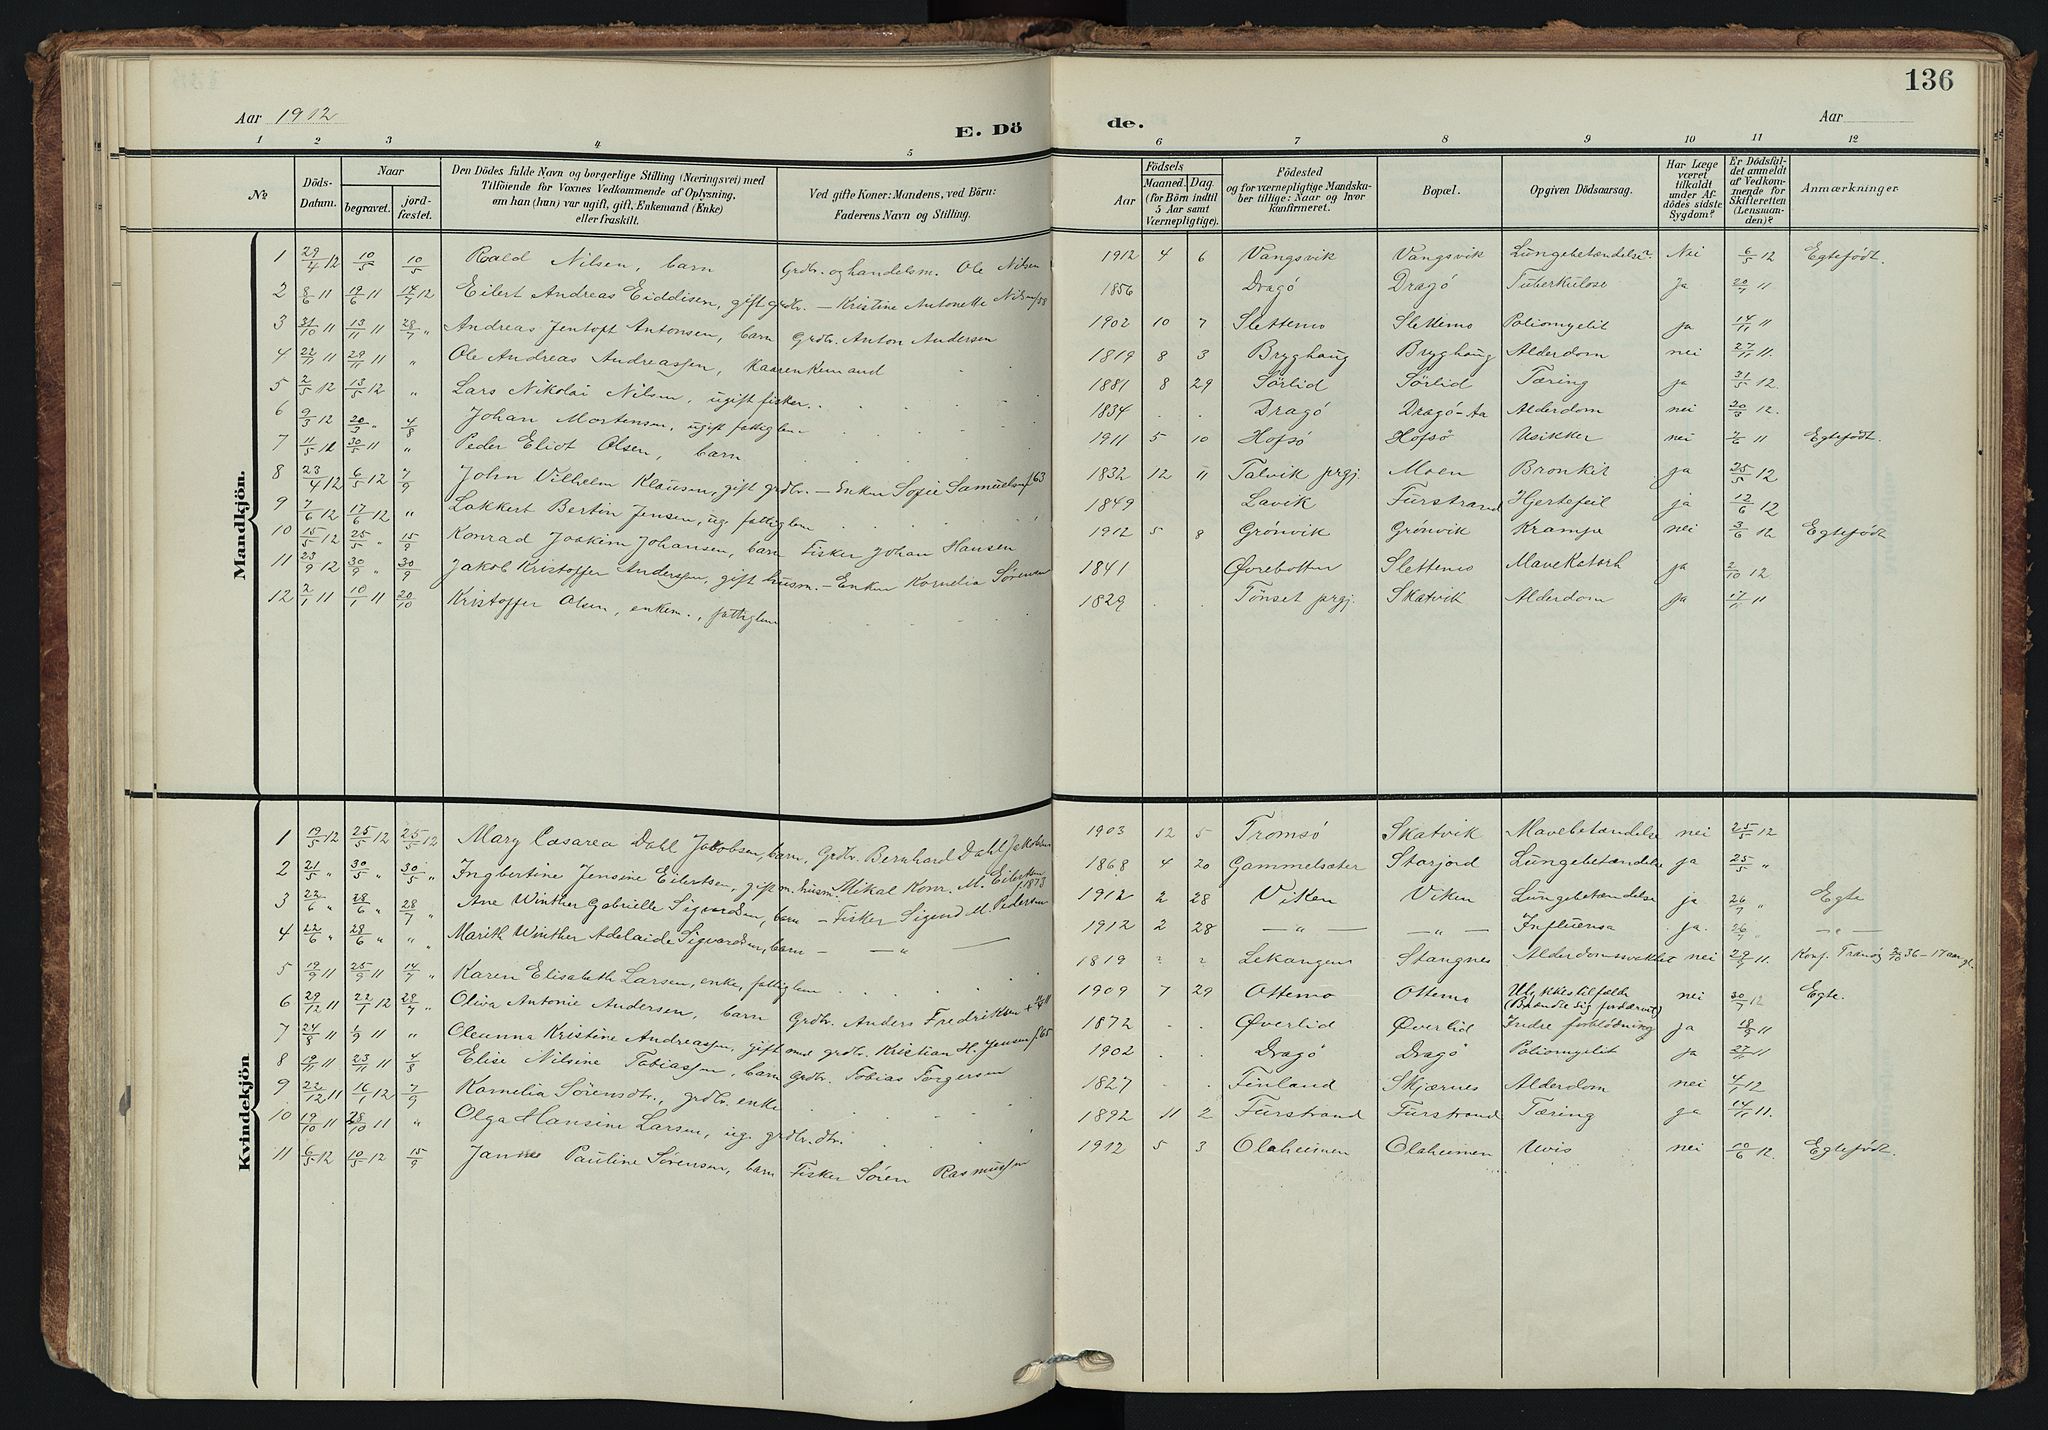 136
Aar 1912
E. Dö
de.
Aar
1 2 3 4 5 6 7 8 9 10 11 12
No
Döds-Datum.
Naar
begravet.
jord-fæstet.
Den Dödes fulde Navn og borgerlige Stilling (Næringsvei) med
Tilföiende for Voxnes Vedkommende af Oplysning,
om han (hun) var ugift, gift, Enkemand (Enke)
eller fraskilt.
Ved gifte Koner: Mandens, ved Börn:
Faderens Navn og Stilling.
Födsels
Aar
Maaned. Dag.
(for Börn indtil
5 Aar samt
Værnepligtige).
Födested
og for værnepligtige Mandska-
ber tillige: Naar og hvor
konfirmeret.
Bopæl.
Opgiven Dödsaarsag.
Har Læge
været
tilkaldt
under Af-
dödes sidste
Sygdom?
Er Dödsfal-
det anmeldt
af Vedkom-
mende for
Skifteretten
(Lensman-
den)?
Anmærkninger.
Mandkjön.
1 29/4 12 10/5 10/5 Roald Nilsen, barn Grdbr. og handelsm. Ole Nilsen 1912 4 6 Vangsvik Vangsvik Lungebetændelse Nei 6/5 12 Egtefödt.
2 8/6 11 19/6 11 14/7 12 Eilert Andreas Eiddisen, gift grdbr. — Kristine Antonette Nilsen f 58 1856 Dragö Dragö Tuberkulose Ja 20/7 11
3 31/10 11 13/11 11 28/7 " Andreas Jentoft Antonsen, barn Grdbr. Anton Andersen 1902 10 7 Slettemo Slettemo Poliomyelit ja 14/11 11
4 22/11 11 29/11 11 " Ole Andreas Andreassen, kaarenkemand 1819 8 3 Bryghaug Bryghaug Alderdom nei 27/11 11.
5 2/5 12 13/5 12 " Lars Nikolai Nilsen, ugift fisker 1881 8 29 Sörlid Sörlid Tæring ja 31/5 12.
6 9/3 12 20/3 " 4/8 Johan Mortensen, ugift fattiglem 1834 Dragö Dragö-Aa Alderdom nei 20/3 12.
7 11/5 12 30/5 11 " Peder Eliot Olsen, barn 1911 5 10 Hofsö Hofsö Usikker nei 7/6 11 Egtefödt.
8 23/4 12 6/5 12 7/9 John Vilhelm Klausen, gift grdbr. — Enken Sofie Samuelsen f 63 1832 12 " Talvik prgj. Moen Bronkit ja 25/5 12
9 7/6 12 17/6 12 " Lakkert Bertin Jensen, ug. fattiglem 1849 Lavik Furstrand Hjertefeil ja 12/6 12
10 15/5 12 25/5 " 15/9 Konrad Joakim Johansen, barn Fisker Johan Hansen 1912 5 8 Grönvik Grönvik Krampe nei 3/6 12 Egtefödt
11 23/9 12 30/9 " 30/9 Jakob Kristoffer Anderssen, gift husm. — Enken Kornelia Sörensen 1841 Övrebotten Slettenes Mavekatarh ja 2/10 12
12 2/1 11 10/1 11 20/10 Kristoffer Olsen, enkem., fattiglem 1829 Tönset prgj. Skatvik Alderdom ja 17/1 11
Kvindekjön
1 19/5 12 25/5 12 25/5 12 Mary Cæsarea Dahl Jakobsen, barn, Grdbr. Bernhard Dahl Jakobsen 1903 12 5 Tromsö Skatvik Mavebetændelse nei 25/5 12
2 21/5 " 30/5 " 30/5 " Ingbertine Jensine Eilertsen, gift m. husm. Mikal Konr. M. Eilertsen f. 1873 1868 4 20 Gammelsæter Storjord Lungebetændelse ja 25/5 "
3 22/6 " 28/6 " 28/7 " Ane Winther Gabrielle Sigvardsen, barn — Fisker Sigvard M. Pedersen 1912 2 28 Viken Viken Lungebetændelse ja 26/7 " Egte
4 22/6 " 28/6 " " " Marith Winther Adelaide Sigvardsen, barn — " — 1912 2 28 — " — — " — Influensa ja. 26/7 " — " —
5 19/9 11 25/9 11 14/7 " Karen Elisabeth Larsen, enke, fattiglem 1819 ? ? Lekangen Stangnes Alderdomssvakhet nei 29/9 11. Konf. Tranöy 2/10 36 — 17 aar gl.
6 29/12 11 22/1 12 28/7 " Oliva Antonie Andersen, barn Grdbr. Anders Fredriksen 1909 7 29 Ottemo Ottemo Ulykkestilfælde (Brændte sig fordærvet) nei 30/7 12 Egte.
7 24/8 11 1/9 11 " Oleanna Kristine Andreassen, gift med grdbr. Kristian H. Jensen f. 65 1872 Øverlid Øverlid Indre forblödning ja 18/9 11
8 19/11 11 23/11 11 4/8 Elise Nilsine Tobiassen, barn Grdbr. Tobias Torgersen 1902 Dragö Dragö Poliomyelit ja 27/11 11
9 22/12 11 16/1 12 7/9 Kornelia Sörensdtr., grdbr. enke 1827 Finland Skjærnes Alderdom nei 4/1 12
10 19/10 11 28/10 11 " Olga Hansine Larsen, ug. grdbr. dtr. 1892 11 2 Furstrand Furstrand Tæring ja 14/11 11.
11 6/5 12 10/5 12 15/9 Janne Pauline Sörensen, barn Fisker Sören Rasmussen 1912 5 3 Olaheimen Olaheimen Uvis nei 10/6 12 Egtefödt.